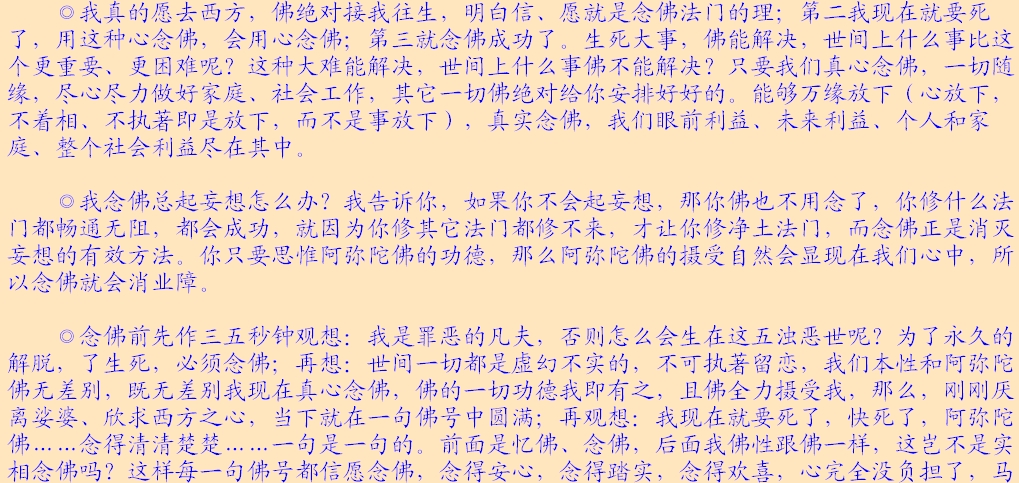 ◎我真的愿去西方，佛绝对接我往生，明白信、愿就是念佛法门的理；第二我现在就要死
了，用这种心念佛，会用心念佛；第三就念佛成功了。生死大事，佛能解决，世间上什么事比这
个更重要、更困难呢？这种大难能解决，世间上什么事佛不能解决？只要我们真心念佛，一切随
缘，尽心尽力做好家庭、社会工作，其它一切佛绝对给你安排好好的。能够万缘放下（心放下，
不着相、不执著即是放下，而不是事放下），真实念佛，我们眼前利益、未来利益、个人和家
庭、整个社会利益尽在其中。
◎我念佛总起妄想怎么办？我告诉你，如果你不会起妄想，那你佛也不用念了，你修什么法
门都畅通无阻，都会成功，就因为你修其它法门都修不来，才让你修净土法门，而念佛正是消灭
妄想的有效方法。你只要思惟阿弥陀佛的功德，那么阿弥陀佛的摄受自然会显现在我们心中，所
以念佛就会消业障。
◎念佛前先作三五秒钟观想：我是罪恶的凡夫，否则怎么会生在这五浊恶世呢？为了永久的
解脱，了生死，必须念佛；再想：世间一切都是虚幻不实的，不可执著留恋，我们本性和阿弥陀
佛无差别，既无差别我现在真心念佛，佛的一切功德我即有之，且佛全力摄受我，那么，刚刚厌
离娑婆、欣求西方之心，当下就在一句佛号中圆满；再观想：我现在就要死了，快死了，阿弥陀
佛……念得清清楚楚……一句是一句的。前面是忆佛、念佛，后面我佛性跟佛一样，这岂不是实
相念佛吗？这样每一句佛号都信愿念佛，念得安心，念得踏实，念得欢喜，心完全没负担了，马